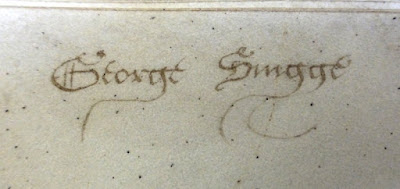 George Snigge